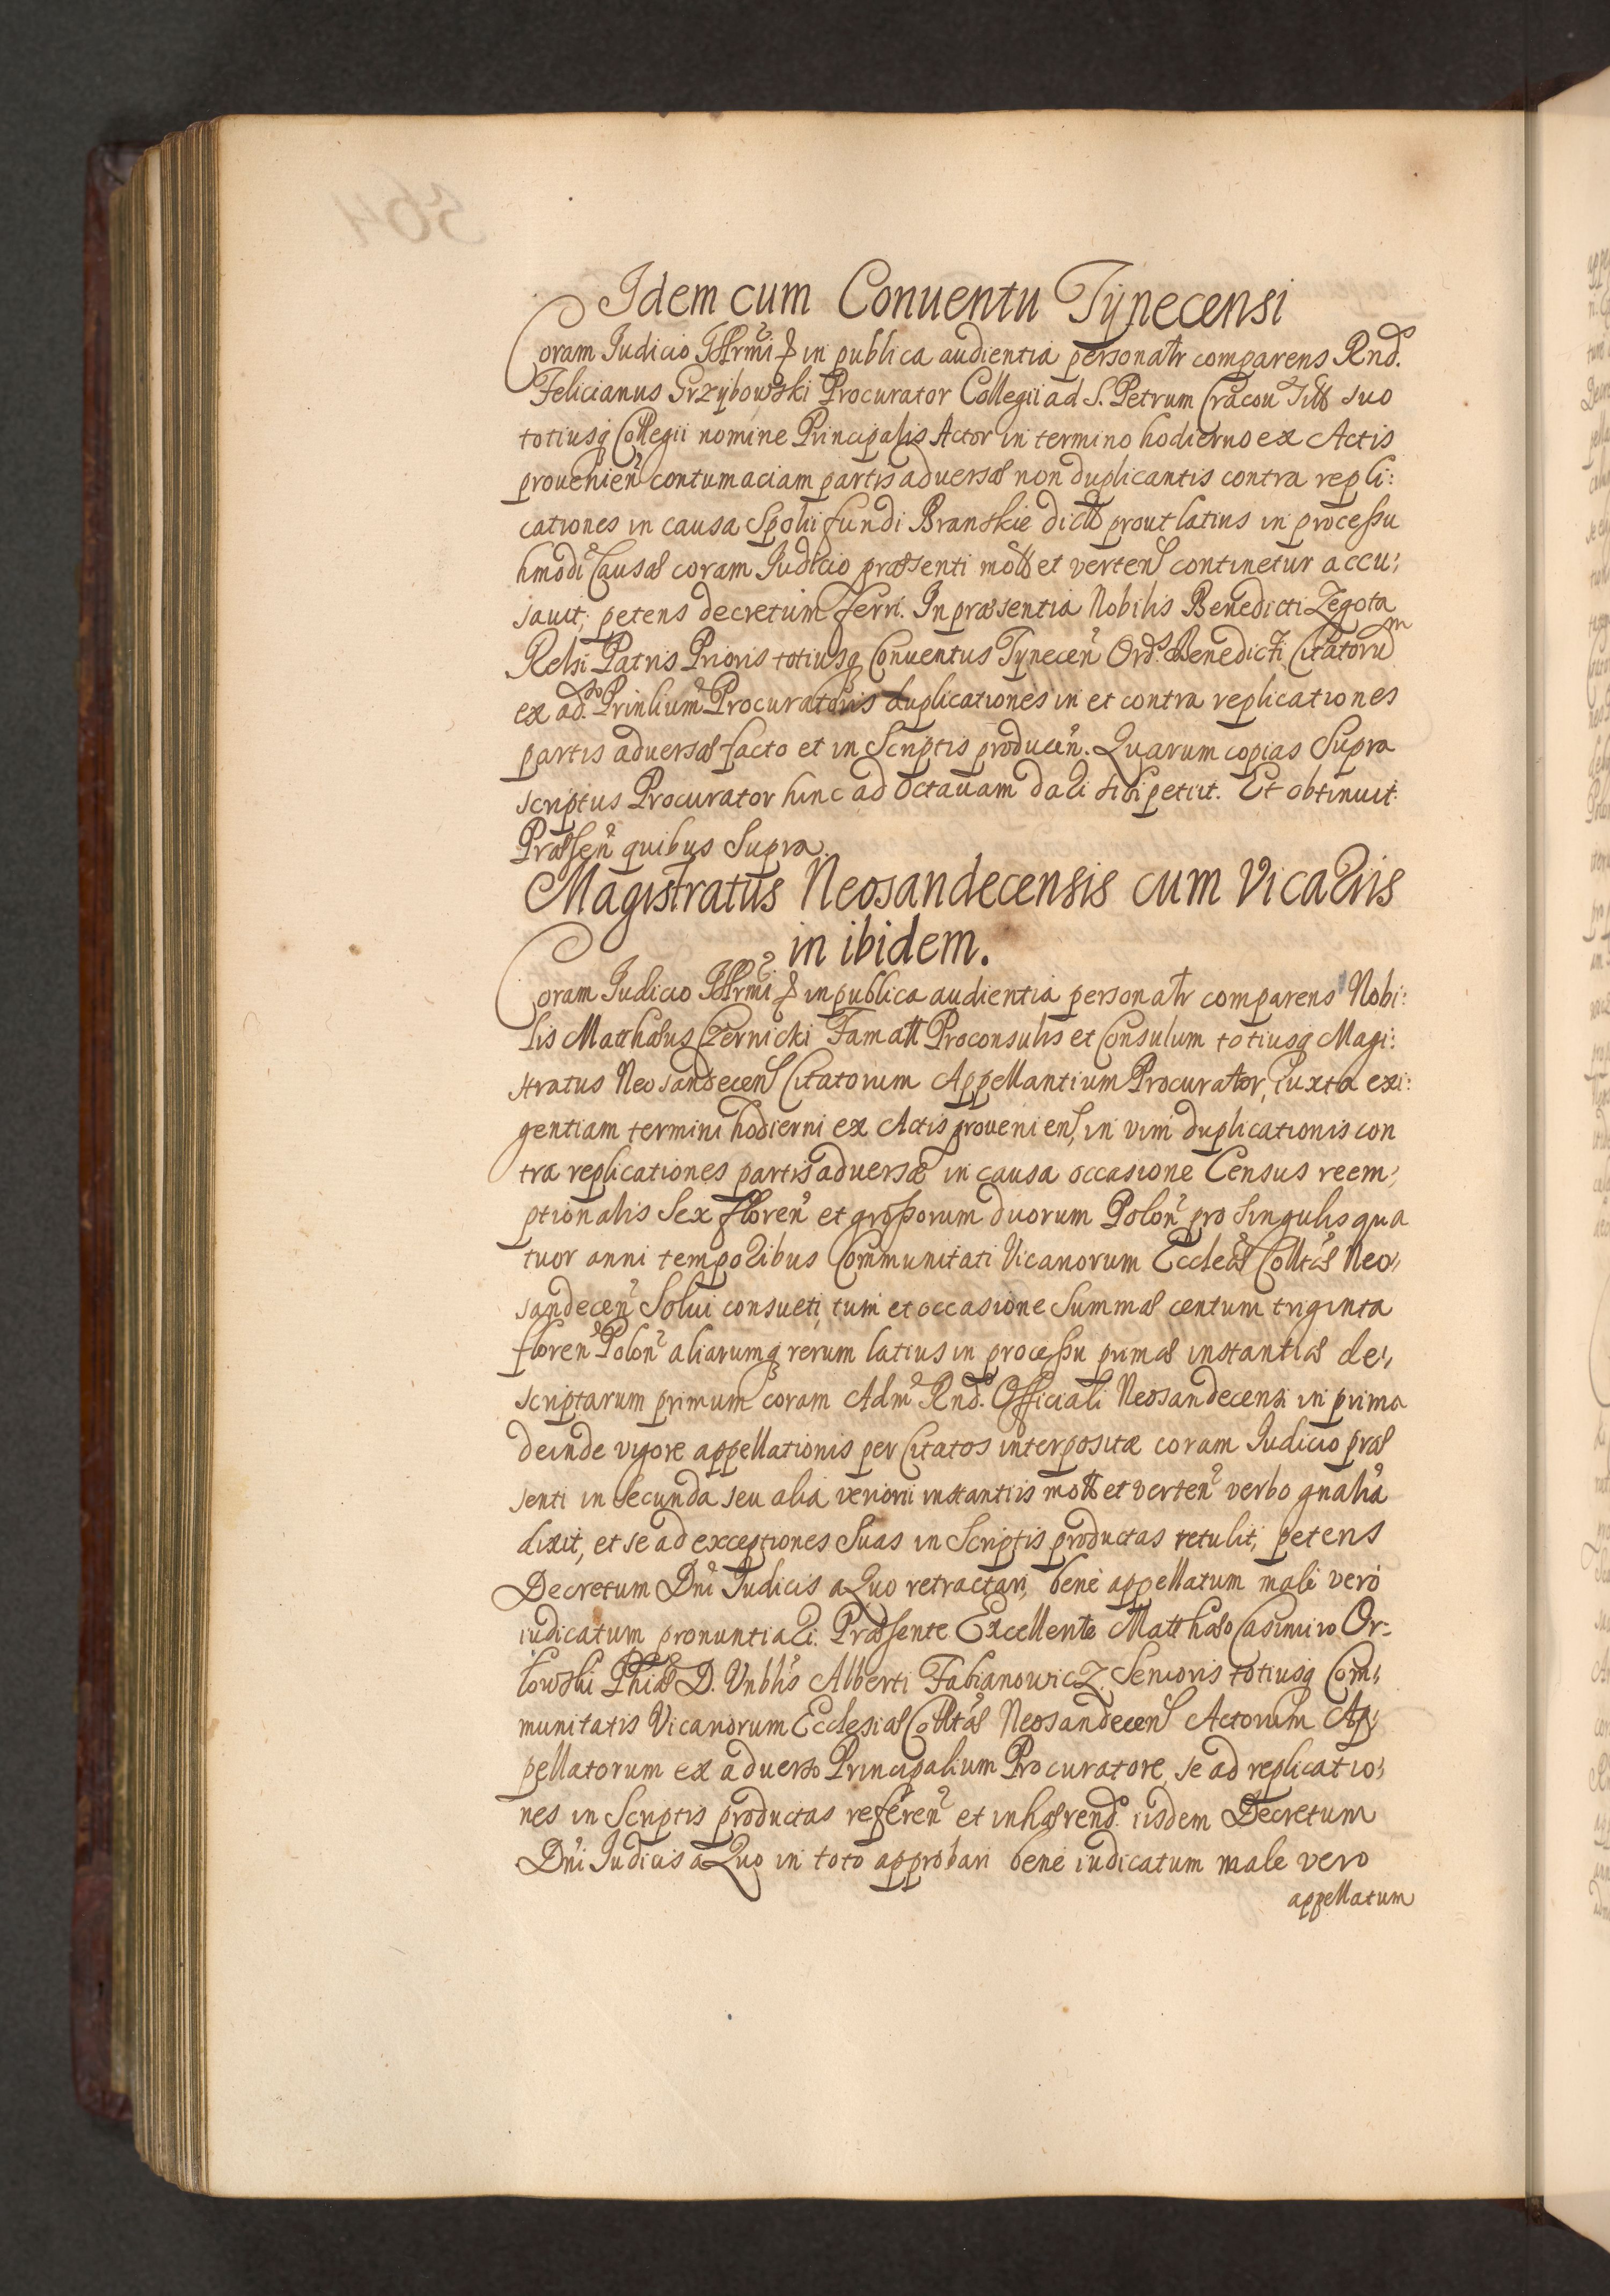 Idem cum Conuentu Tÿnecensi
Coram Iudicio Illrmi & in publica audientia personatr comparens Rnd.
Felicianus Grzÿbowski Procurator Collegii ad S. Petrum Cracou suo
totiusq Collegii nomine Principalis Actor in termino hodierno ex Actis
prouenien contumaciam partis aduersæ non duplicantis contra repli:
cationes in causa Spolii fundi Branskie dict prout latius in processu
hmodi Causæ coram Iudicio præsenti mott et verten continetur accu:
sauit, petens decretum ferri. In præsentia Nobilis Benedicti Zegota
Relsi Patris Prioris totiusq Conuentus Tynecen Ord. S. Benedicti Citatorum
ex adso Prinlium Procuratoris duplicationes in et contra replicationes
partis aduersæ facto et in Scriptis producen. Quarum copias Supra
scriptus Procurator hinc ad octauam dari sibi petiit. Et obtinuit.
Præsen quibus Supra.
Magistratus Neosandecensis cum Vicariis
in ibidem.
Coram Iudicio Illrmi & in publica audientia personatr comparens Nobi:
lis Matthæus Czernicki Famatt Proconsulis et Consulum totiusq Magi:
stratus Neosandecens Citatorum Appellantium Procurator, iuxta exi:
gentiam termini hodierni ex Actis proueniens, in vim duplicationis con
tra replicationes partis aduersæ in causa occasione Census reem,
ptionalis Sex floren et grossorum duorum Polon pro Singulis qua
tuor anni temporibus Communitati Vicariorum Eccleæ Colltæ Neo,
sandecen Solui consueti, tum et occasione Summæ centum triginta
floren Polon aliarumq rerum latius in processu primæ instantiæ de,
scriptarum primum coram Adm Rnd. Officiali Neosandecensi in prima
deinde vigore appellationis per Citatos interpositæ coram Iudicio præ
senti in Secunda seu alia veriorii instantiis mott et verten verbo gnalia
dixit, et se ad exceptiones Suas in Scriptis productas retulit, petens
Decretum Dni Iudicis a Quo retractari, bene appellatum male vero
iudicatum pronuntiari. Præsente Excellente Matthæo Casimiro Or-
łowski Phiæ D. Vnblis Alberti Fabianowicz Senioris totiusq Com,
munitatis Vicariorum Ecclesiæ Colltæ Neosandecens Actorum Ap,
pellatorum ex aduerso Principalium Procuratore, se ad replicatio,
nes in Scriptis productas referen et inhærend. iisdem Decretum
Dni Iudicis a Quo in toto approbari bene iudicatum male vero
appellatum